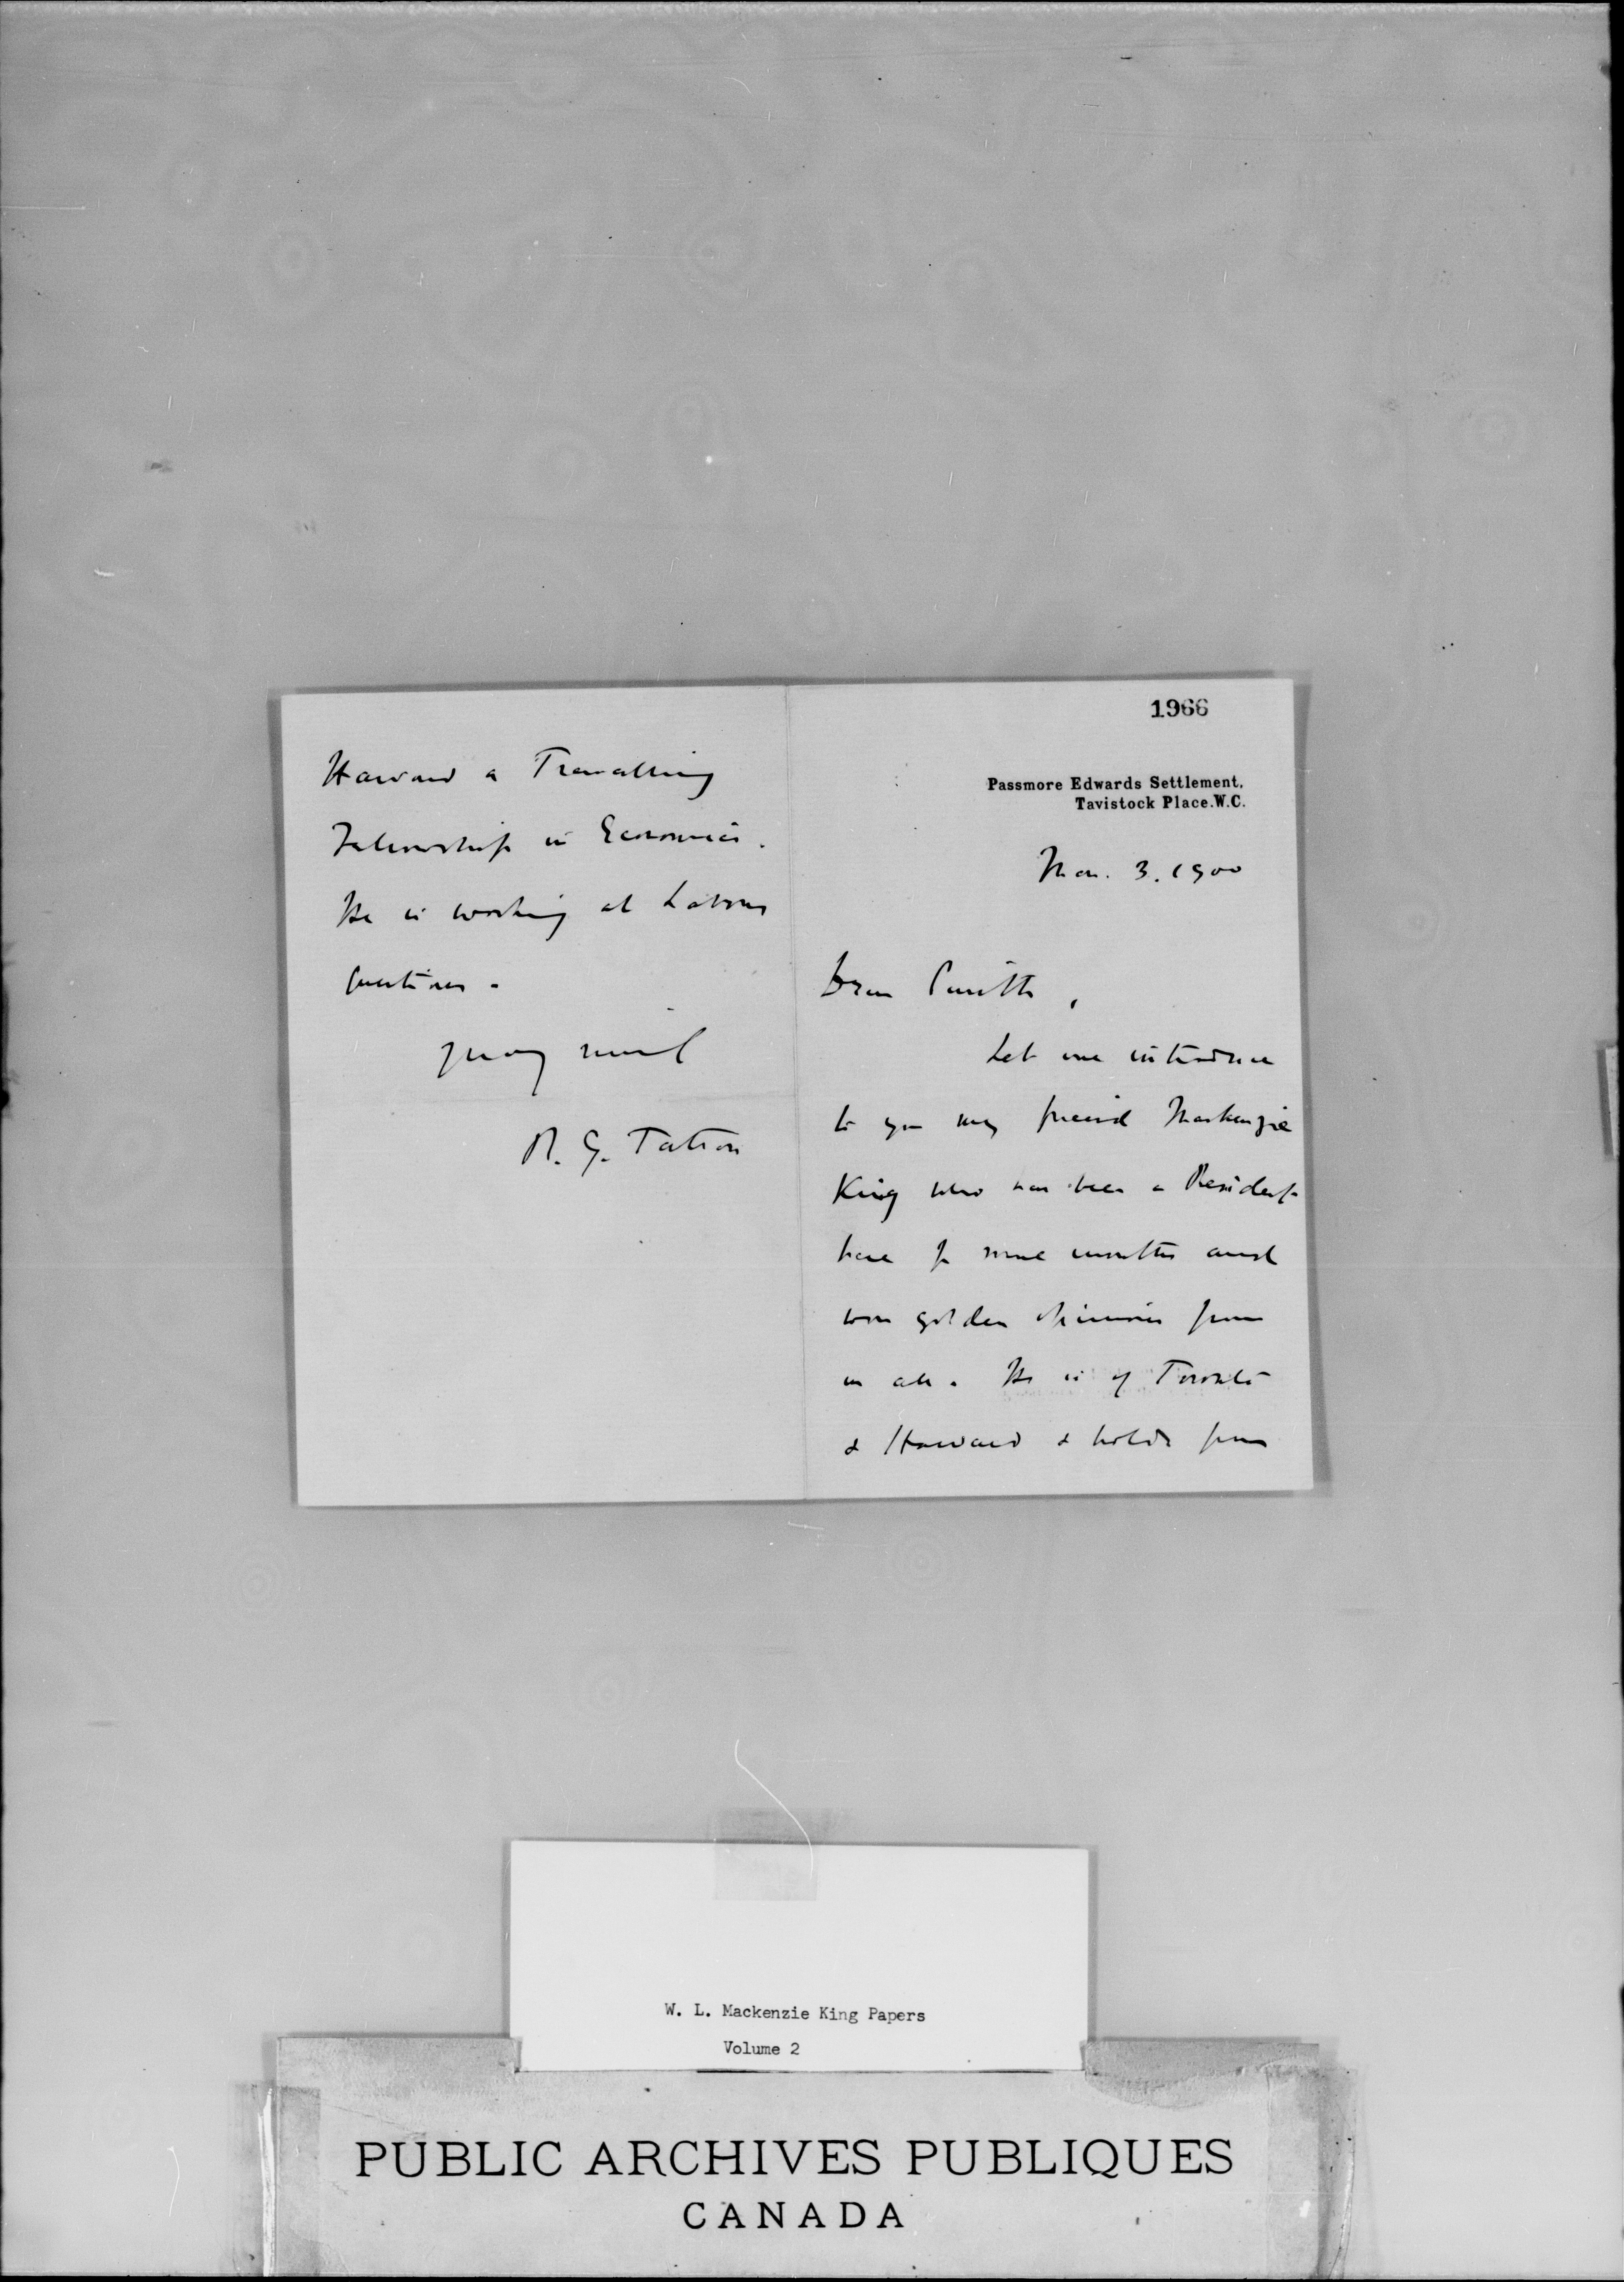 1966
Passmore Edwards Settlement,
Tavistock Place. W.C.
Mar. 3. 1900
Dear Smith,
Let me introduce
to you my friend Mackenzie
King who has been a Resident
here for some months and
won golden opinions from
us all. He is of Toronto
& Harvard & holds from
Harvard a Travelling
Fellowship in Economics.
He is working at Labour
questions.
R. G. Tatton
W. L. Mackenzie King Papers
Volume 2
PUBLIC ARCHIVES PUBLIQUES
CANADA